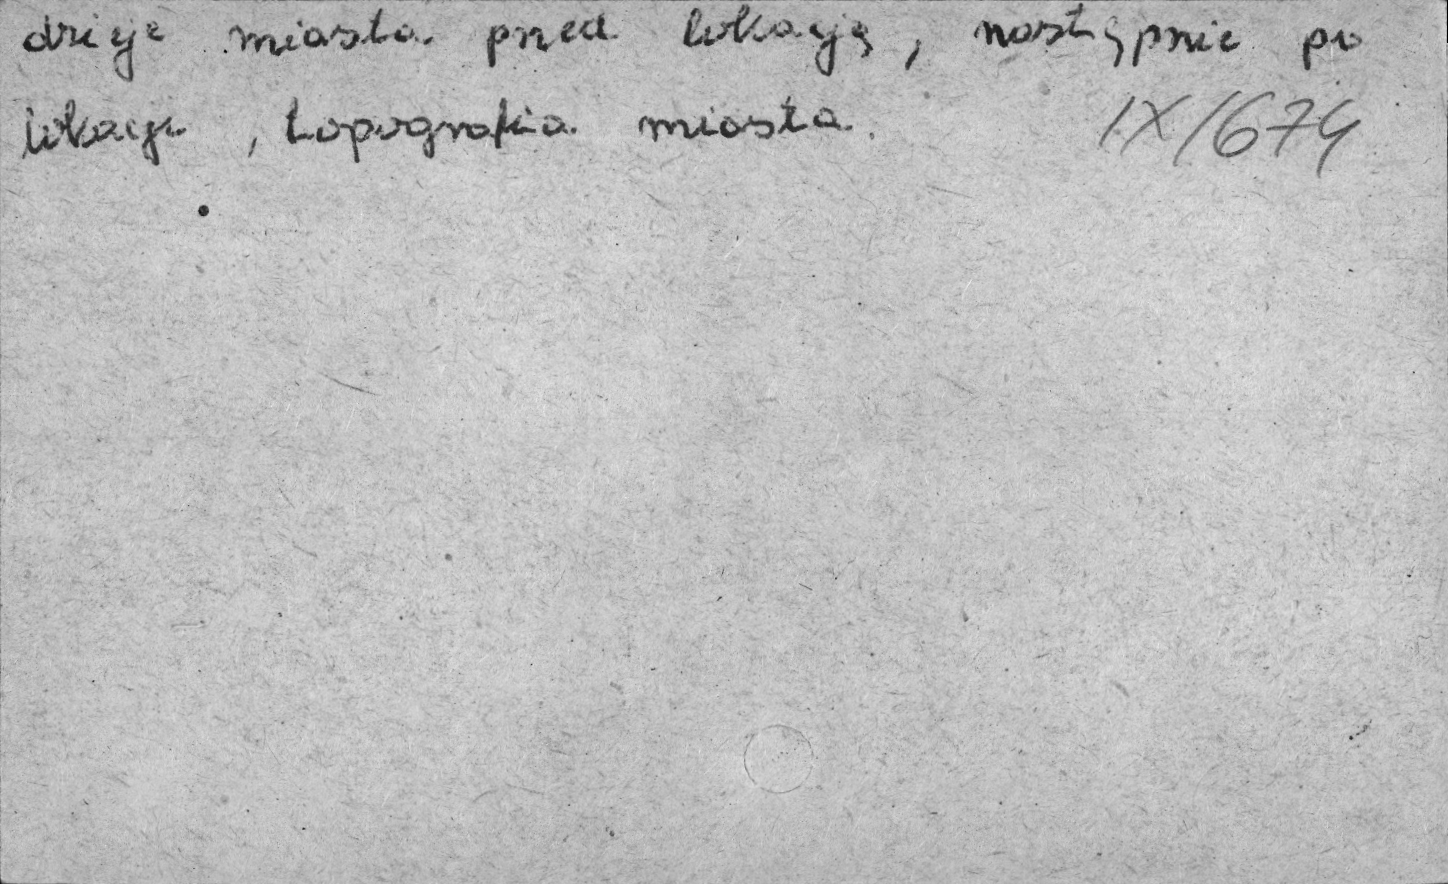 dzieje miasta przed lokacją, następnie po
lokacji, topografia miasta. IX/674